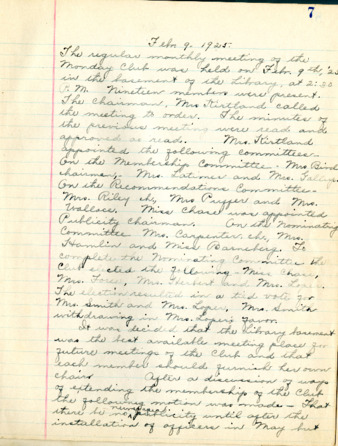 7
Feb. 9 - 1925.
The regular monthly meeting of the
Monday Club was held on Feb. 9th, '25
in the basement of the Library, at 2:30
P.M. Nineteen members were present.
The Chairman, Mrs Kirtland called
the meeting to order. The minutes of
the previous meeting were read and
approved as read. Mrs. Kirtland
appointed the following committees -
On the Membership Committee - Mrs Bird
chairman - Mrs. Latimer and Mrs.
On the Recommendations Committee -
Mrs. Riley ch, Mrs Puffer and Mrs.
Wallace. Miss Chase was appointed
Publicity Chairman. On the Nominating
Committee Mrs. Carpenter ch, Mrs.
Hamlin and Miss Barneberg. To
complete the Nominating Committee the
Club elected the following - Miss Chase,
Mrs. Mrs. and Mrs. Loper.
The election resulted in a tied vote for
Mrs. Smith and Mrs. Loper, Mrs. Smith
withdrawing in Mrs. Loper's favor.
It was decided that the Library basement
was the best available meeting place for
future meetings of the Club and that
each member should furnish her own
chair. After a discussion of ways
of extending the membership of the Club
the following motion was made - That
there be no publicity until after the
installation of officers in May but